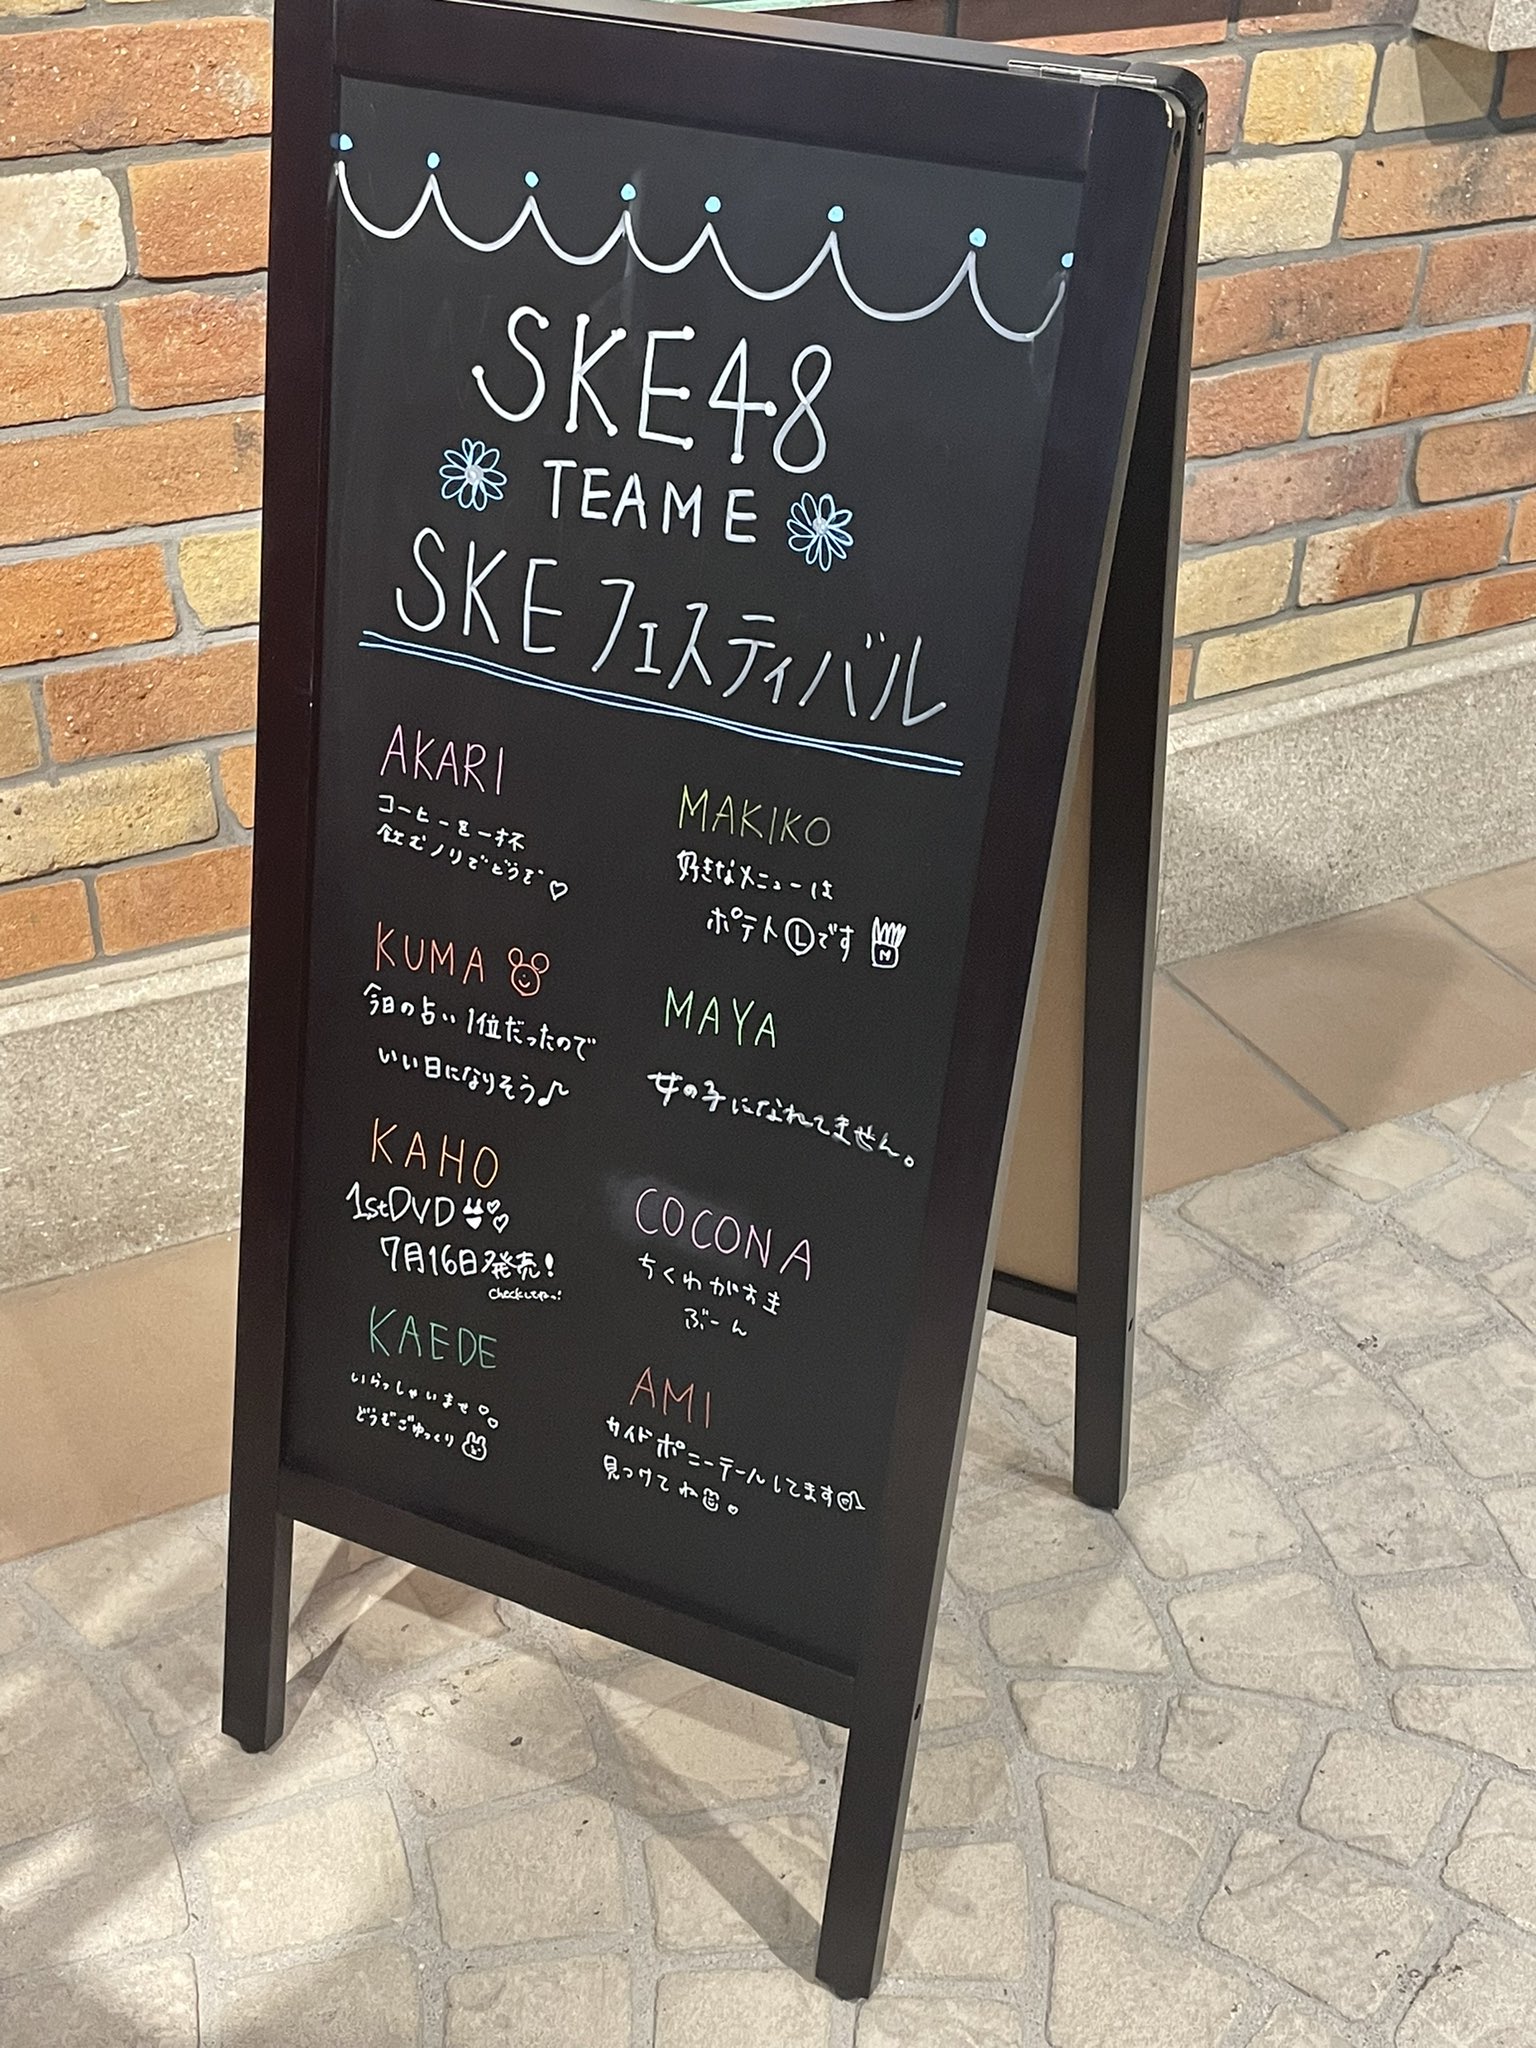 SKE48
TEAM E
SKEフェスティバル
AKARI
コーヒーを一杯
飲むノリでどうぞ♡
KUMA
今日の占い1位だったので
いい日になりそう♪
KAHO
1stDVD
7月16日発売!
checkしてねっ!
KAEDE
いらっしゃいませ
どうぞごゆっくり
MAKIKO
好きなメニューは
ポテトⓁです
M
MAYA
女の子になれてません。
COCONA
ちくわがおま
ぶーん
AMI
サイドポニーテールしてます
見つけてね